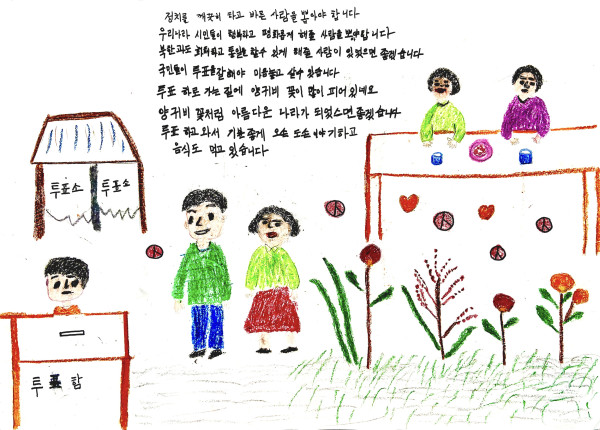 정치를 깨끗히 하고 바른 사람을 뽑아야 합니다
우리나라 시민들이 행복하고 평화롭게 해줄 사람을 뽑습니다
북한과도 회의하고 통일을 할수 있게 해줄 사람이 있었으면 좋겠습니다
국민들이 투표를 잘해야 마음놓고 살수 있습니다
투표 하로 가는 길에 양귀비 꽃이 많이 피어 있네요
양귀비 꽃처럼 아름다운 나라가 되었스면 좋겠습니다
투표 하고 와서 기분좋게 오손 도손 이야기하고
음식도 먹고 있습니다
투표소 투표소
투표함